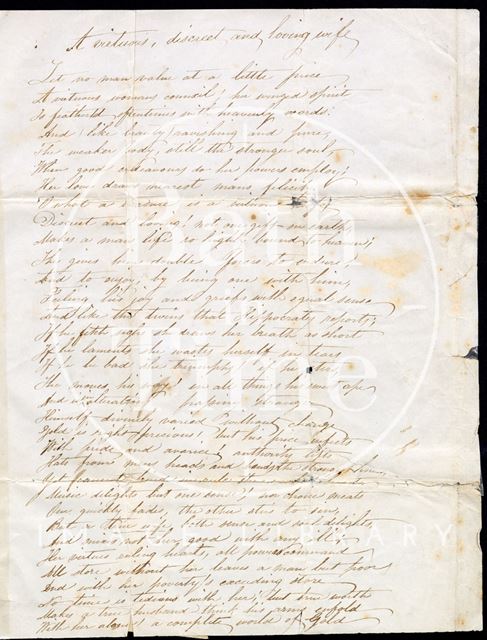 A virtuous, discreet and loving wife
Let no man value at a little price
A virtuous womans council; her winged spirit
Is feather'd oftentimes with heavenly words:
And like beauty ravishing and pure,
The weaker body still the stronger soul,
When good endeavours do her powers employ;
Her love draws nearest mans felicity
O what a treasure is a virtuous wife
Discreet and loving! not one gift on earth
Makes a man's life so highly bound to heaven;
She gives him double forces to endure
And to enjoy; by being one with him,
Feeling his joys and griefs with equal sense
and like the twins that Hipocrates reports;
If he fetch sighs she draws her breath as short
If he laments she wastes herself in tears
If he be sad she
She moves his way; in all things his sweet ape
And
Himself divinely varied without change
Gold is right precious; but his price infects
With pride and avarice, authority lifts
Hats from mens heads and bends the strongest knees
Yet cannot
Music delights but one sense; nor choice meats
One quickly fades, the other stirs to sin;
But a true wife, both sense and soul delights
And mixes not her good with any ill;
Her virtues ruling hearts, all powers command
All store without her leaves a man but poor
And with her poverty's exceeding store
No time is tedious with her; her true worth
Makes a true husband think his arms enfold
With her alone! a complete world of Gold
Bath
in
Time
IMAGE LIBRARY